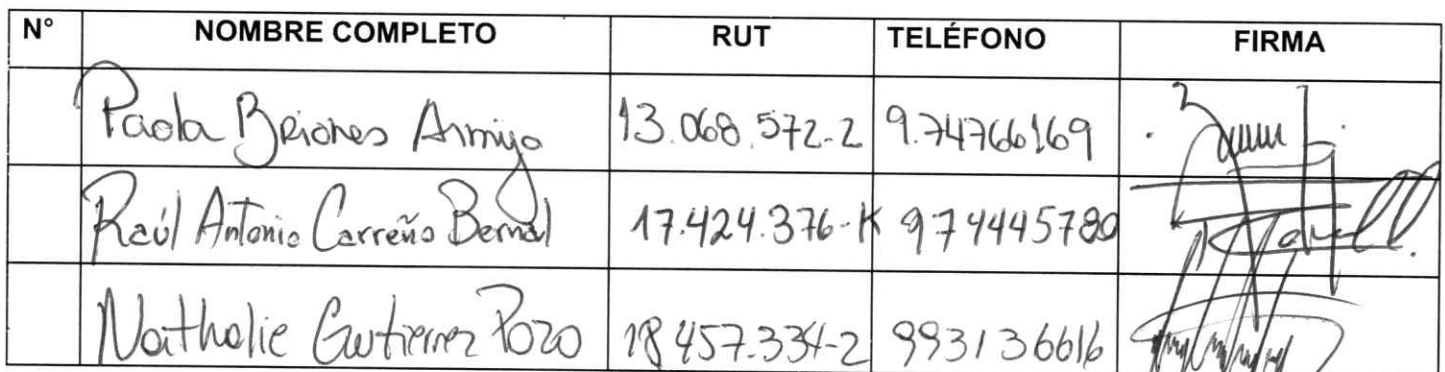 N° NOMBRE COMPLETO RUT TELÉFONO FIRMA
Paola Briones Armijo 13.068.572-2 9.74766169
Raúl Antonio Carreño Bernal 17.424.376-K 974445780
Nathalie Gutierrez Pozo 18.457.334-2 993136616